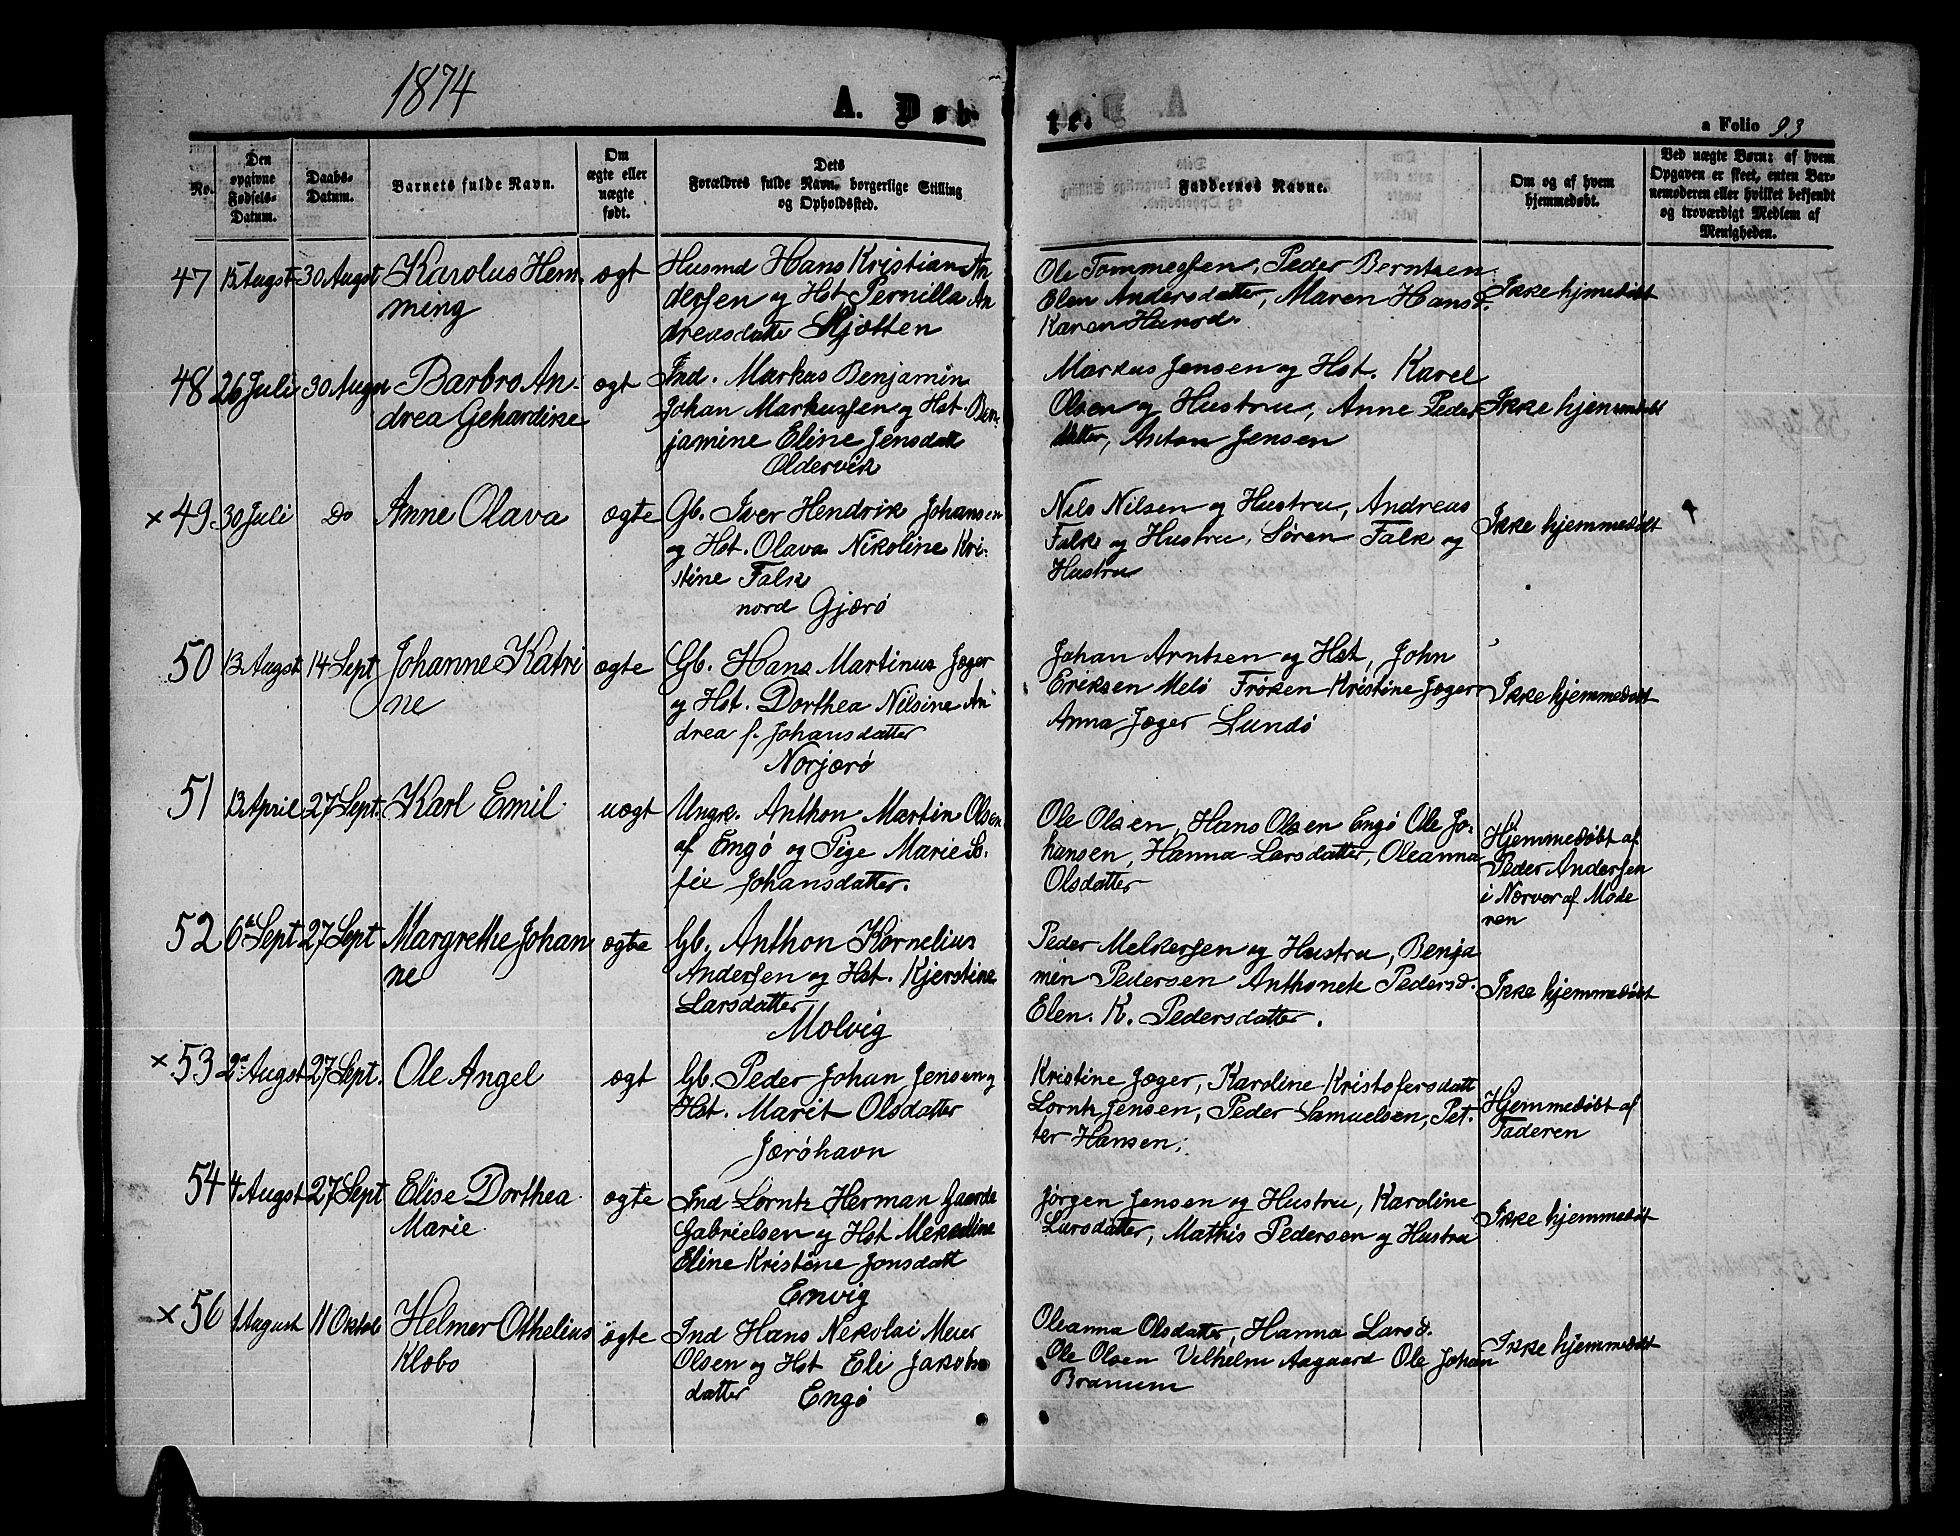 1874
A. Døb-
te.
a Folio 93
No.
Den
opgivne
Fødsels-
Datum.
Daabs-
Datum.
Barnets fulde Navn.
Om
ægte eller
uægte
født.
Dets
Forældres fulde Navn, borgerlige Stilling
og Opholdssted.
Faddernes Navne.
Om og af hvem
hjemmedøbt.
Ved uægte Børn: af hvem
Opgaven er skeet, enten Bar-
nemoderen eller hvilket bekjendt
og troværdigt Medlem af
Menigheden.
47 15 Augst 30 Augst Karolus Hem-
ming
ægt
Husmd Hans Kristian An
dersen og Hst. Pernilla An
dreasdatter Kjøtten
Ole Tommessen, Peder Berntsen
Elen Andersdatter, Maren Hansd.
Karen Hansd.
Ikke hjmedøbt
48 26 Juli 30 Augst Barbro An-
drea Gehardine
ægt
Ind. Markus Benjamin
Johan Markussen og Hst. Ben-
jamine Eline Jensdatt
Oldervik
Markus Jensen og Hst. Karel
Olsen og Hustru, Anne Peders
datter, Anton Jensen
Ikke hjemmedøbt
× 49 30 Juli Do Anne Olava
ægte
Gb. Iver Hendrik Johansen
og Hst. Olava Nikoline Kri-
stine Falk
nord Gjærø
Nils Nilsen og Hustru, Andreas
Falk og Hustru, Søren Falk og
Hustru
Ikke hjemmedøbt
50 13 Augst 14 Sept Johanne Katri
ne
ægte
Gb. Hans Martinus Jæger
og Hst. Dorthea Nilsine An
drea f. Johansdatter
Norjærø
Johan Arntsen og Hst, John
Eriksen Melø Frøken Kristine Jæger
Anna Jæger Lundø
Ikke hjemmedøbt
51 13 April 27 Sept. Karl Emil
uægt
Ungk. Anthon Martin Olsen
af Engø og Pige Marie So-
fie Johansdatter.
Ole Olsen, Hans Olsen Engø Ole Jo-
hansen, Hanna Larsdatter, Oleanna
Olsdatter
Hjemmedøbt af
Peder Andersen
i Norvær af Mode
ren
52 6te Sept 27 Sept Margrethe Johan
ne
ægte
Gb. Anthon Kornelius
Andersen og Hst. Kjerstine
Larsdatter
Molvig
Peder Melkersen og Hustru, Benja
min Pedersen Anthonete Pedersd.
Elen. K. Pedersdatter.
Ikke hjemmedøbt
× 53 2en Augst 27 Sept. Ole Angel
ægt
Gb. Peder Johan Jensen og
Hst. Marit Olsdatter
Jærøhavn
Kristine Jæger, Karoline Kristofersdatt
Lorntz Jensen, Peder Samuelsen, Pet-
ter Hansen;
Hjemmedøbt af
Faderen
54 4 Augst 27 Sept Elise Dorthea
Marie
ægte
Ind Lorntz Herman Gaarde
Gabrielsen og Hst
Eline Kristine Jonsdatt
Envig
Jørgen Jensen og Hustru, Karoline
Larsdatter, Mathis Pedersen og Hustru
Ikke hjemmedøbt
× 56 1 August 11 Oktob Helmer Othelius
Klæbo
ægte
Ind Hans Nekolai Meier
Olsen og Hst Eli Jakobs
datter Engø
Oleanna Olsdatter, Hanna Larsd.
Ole Olsen Vilhelm Aagaard Ole Johan
Branum
Ikke hjemmedøbt